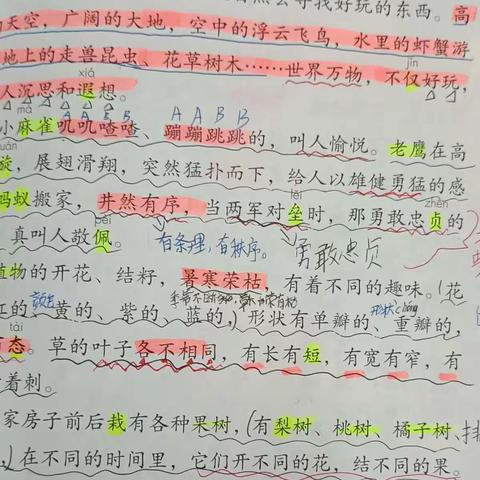 会寻找好玩的东西。高
天空,广阔的大地,空中的浮云飞鸟,水里的虾蟹游
地上的走兽昆虫、花草树木……世界万物,不仅好玩,
jǐn
人沉思和遐想。
xiá
má
A A B B A A B B
小麻雀叽叽喳喳、蹦蹦跳跳的,叫人愉悦。老鹰在高
旋,展翅滑翔,突然猛扑而下,给人以雄健勇猛的感
lěi zhēn
蚂蚁搬家,井然有序,当两军对垒时,那勇敢忠贞的
pèi
真叫人敬佩。
有条理,有秩序。 勇敢忠贞
植物的开花、结籽,暑寒荣枯,有着不同的趣味。(花
颜色 形状
红的、黄的、紫的、蓝的,)形状有单瓣的、重瓣的,
chóng
tài
态。草的叶子各不相同,有长有短,有宽有窄,有
着刺。
家房子前后栽有各种果树,(有梨树、桃树、橘子树、
)在不同的时间里,它们开不同的花,结不同的果。